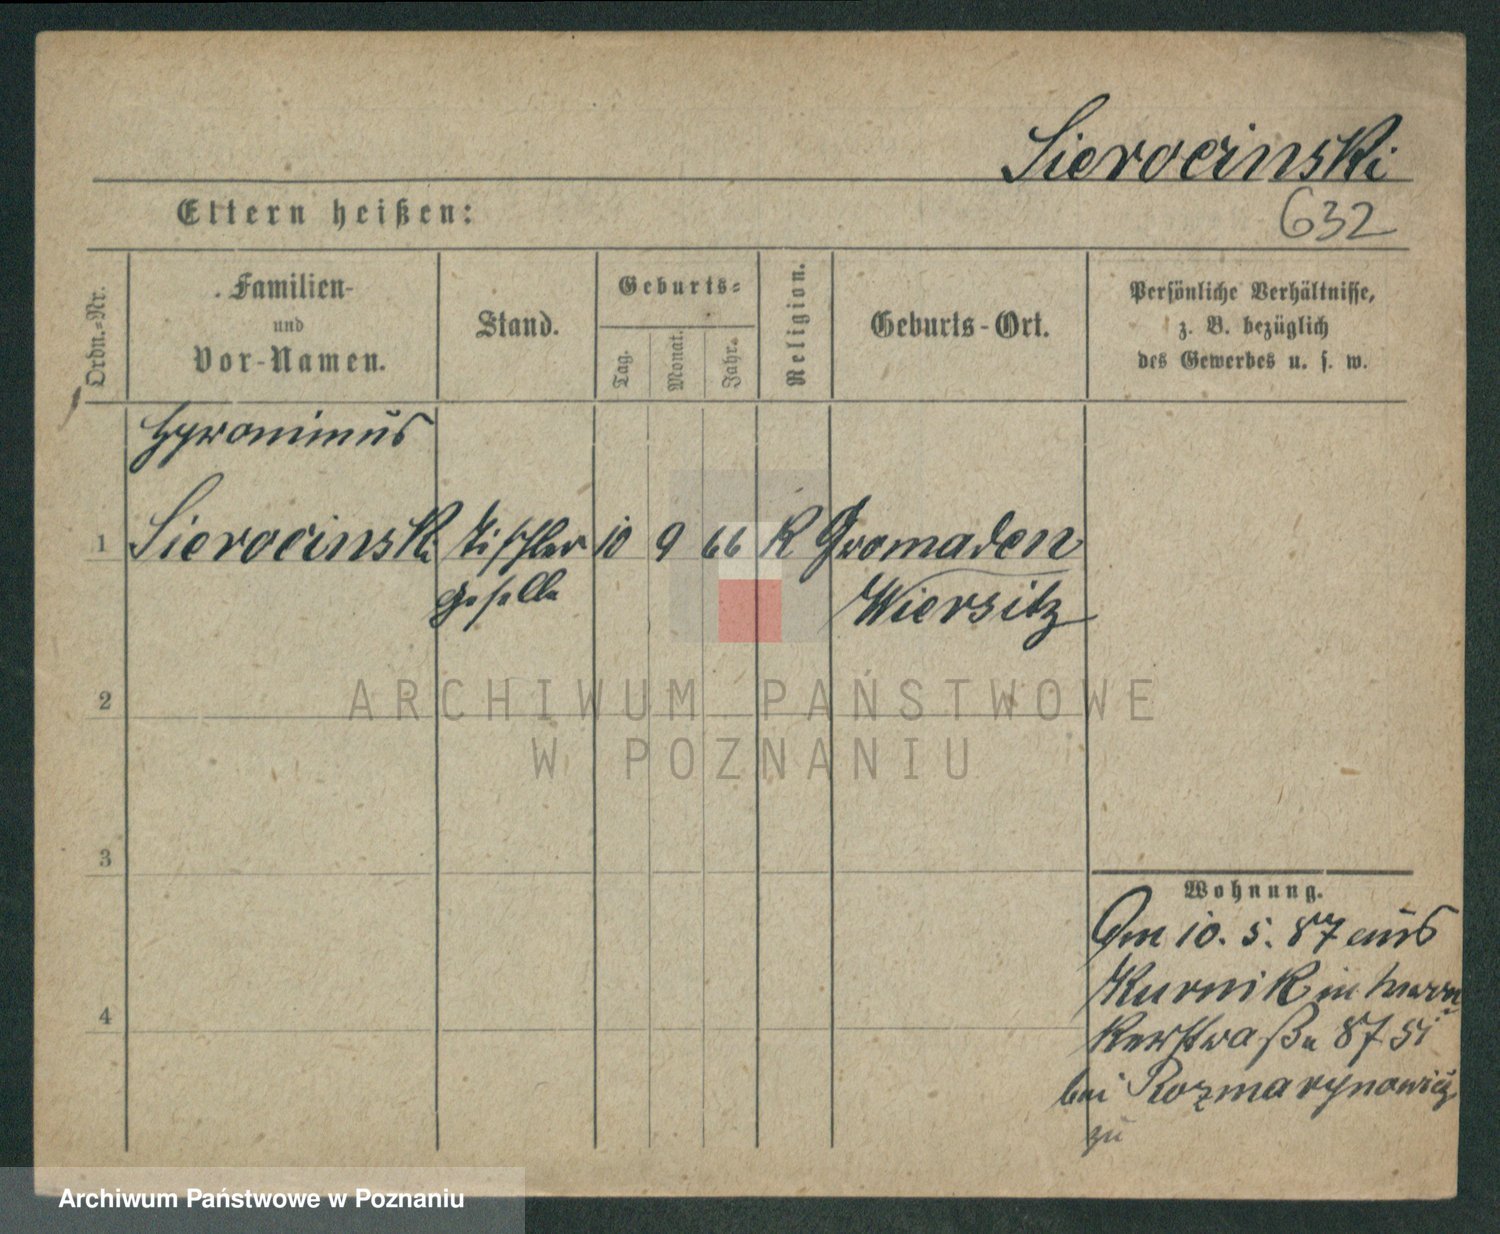 Sierocinski
632
Eltern heißen:
Ordn.-Nr.
Familien-
und
Vor-Namen.
Stand.
Geburts-
Tag.
Monat.
Jahr.
Religion.
Geburts-Ort.
Persönliche Verhältnisse,
z. B. bezüglich
des Gewerbes u. s. w.
Hyronimus
1 Sierocinski Tischler 10 9 66 K Gromaden
geselle Wiersitz
ARCHIWUM PAŃSTWOWE
W POZNANIU
2
3
4
Wohnung.
Am 10. 5. 87 aus
Kurnik in
87 5
bei Rozmarynowicz
zu
Archiwum Państwowe w Poznaniu